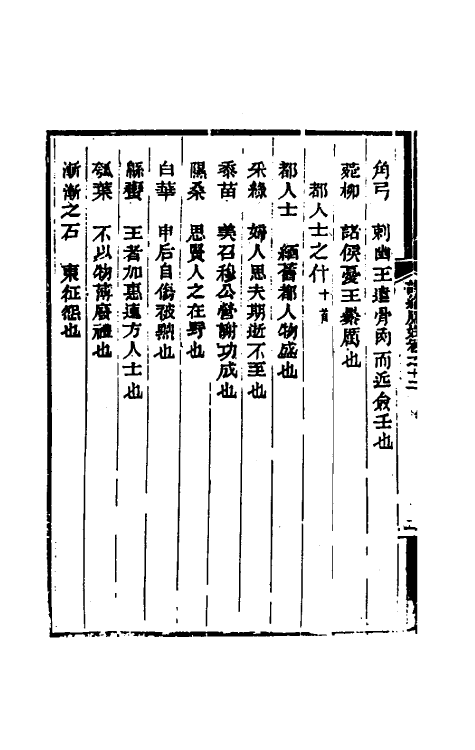 角弓　刺幽王遠骨肉而近僉壬也
菀柳　諸侯憂王暴厲也
都人士之什十首
都人士　緬舊都人物盛也
采綠　婦人思夫期逝不至也
黍苗　美召穆公營謝功成也
隰桑　思賢人之在野也
白華　申后自傷被黜也
緜蠻　王者加惠遠方人士也
瓠葉　不以物薄廢禮也
漸漸之石　東征怨也
詩經原始卷之十二
二